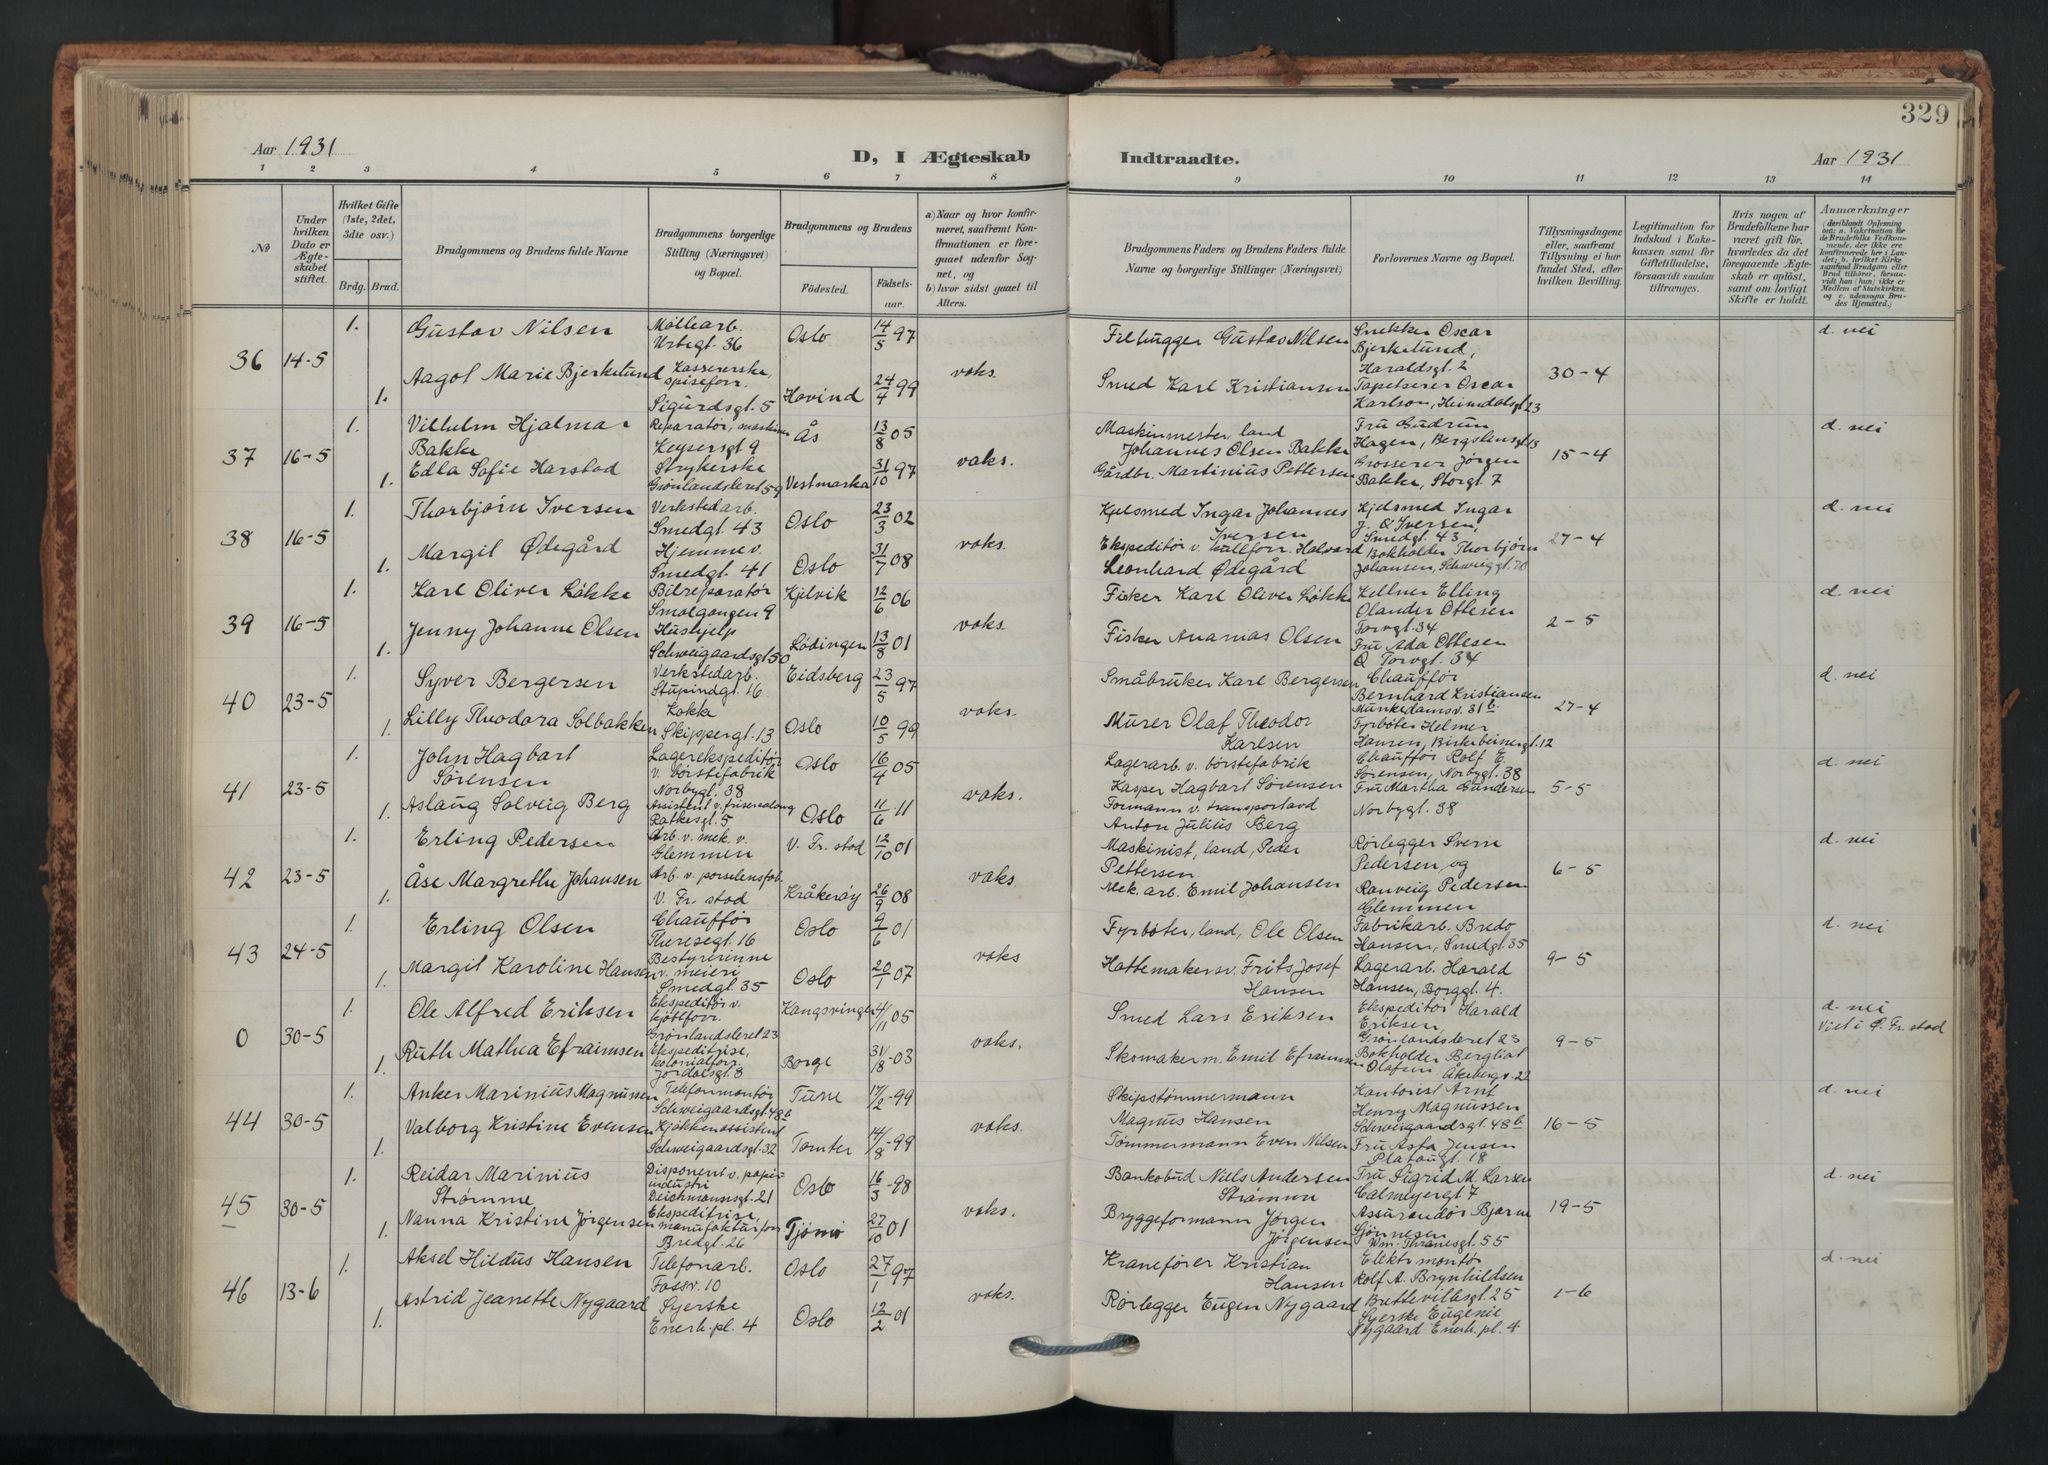 329
Aar 1931
D, I Ægteskab Indtraadte.
Aar 1931
1 2 3 4 5 6 7 8 9 10 11 12 13 14
No
Under hvilken Dato er Ægteskabet stiftet.
Hvilket Gifte (1ste, 2det, 3die osv.)
Brdg. Brud.
Brudgommens og Brudens fulde Navne
Brudgommens borgerlige Stilling (Næringsvei) og Bopæl.
Brudgommens og Brudens
Fødested. Fødselsaar.
a) Naar og hvor konfirmeret, saafremt Konfirmationen er foregaaet udenfor Sognet, og
b) hvor sidst gaael til Alters.
Brudgommens Faders og Brudens Faders fulde Navne og borgerlige Stillinger (Næringsvei)
Forlovernes Navne og Bopæl.
Tillysningsdagene eller, saafremt Tillysning ei har fundet Sted, efter hvilken Bevilling.
Legitimation for Indskud i Enkekassen samt for Giftetilladelse, forsaavidt saadan tiltrænges.
Hvis nogen af Brudefolkene har været gift før, hvorledes da det foregaaende Ægteskab er opløst, samt om lovligt Skifte er holdt.
Anmærkninger
36 14-5
1. Gustav Nilsen Møllearb. Urtegt. 36 Oslo 14/5 97
1. Aagot Marie Bjerkelund Kassererske, spiseforr. Sigurdsgt. 5 Hovind 24/4 99
vaks.
Filhugger Gustav Nilsen
Smed Karl Kristiansen
Snekker Oscar Bjerkelund, Haraldsgt. 2
Tapetserer Oscar Karlson, Heimdalsgt 23
30-4
d. nei
37 16-5
1. Vilhelm Hjalmar Bakke Reparatør, maskiner Keysersgt 9 Ås 13/8 05
1. Edla Sofie Harstad Strykerske Grønlandsleret 59 Vestmarka 31/10 97
vaks.
Maskinmester land Johannes Olsen Bakke
Gårdbr. Martinius Pettersen
Fru Gudrun Hagen, Bergsliensgt 13
Grosserer Jørgen Bakke, Storgt. 7
15-4
d. nei
38 16-5
1. Thorbjørn Iversen Verkstedarb. Smedgt. 43 Oslo 23/3 02
1. Margit Ødegård Hjemmev. Smedgt. 41 Oslo 31/7 08
vaks.
Kjelsmed Ingar Johannes Iversen
Ekspeditør v. Halvard Leonhard Ødegård
Kjelsmed Ingar J. O Iversen, Smedgt. 43
Bokholder Thorbjørn Johansen, Schweiggt. 70
27-4
d. nei
39 16-5
1. Karl Oliver Løkke Bilreparatør Smalgangen 9 Kjelvik 12/6 06
1. Jenny Johanne Olsen Hushjelp Schweigaardsgt 50 Lødingen 13/8 01
vaks.
Fisker Karl Oliver Løkke
Fisker Ananias Olsen
Kellner Elling Olander Ottesen Torvgt. 34
Fru Ada Ottesen Ø Torvgt. 34
2-5
d. nei
40 23-5
1. Syver Bergersen Verkstedarb. Stupindgt. 16 Eidsberg 23/5 97
1. Lilly Theodora Solbakken Kokke Skippergt. 13 Oslo 10/5 99
vaks.
Småbruker Karl Bergersen
Murer Olaf Theodor Karlsen
Chauffør Bernhard Kristiansen Munkedamsv. 31b
Fyrbøter Helmer Hansen, Birkebeinergt. 12
27-4
d. nei
41 23-5
1. John Hagbart Sørensen Lagerekspeditør v. børstefabrik Norbygt. 38 Oslo 16/4 05
1. Aslaug Solveig Berg Assistent v. frisersalong Ratkesgt. 5 Oslo 11/6 11
vaks.
Lagerarb. v. børstefabrik Kasper Hagbart Sørensen
Formann v. transportarb Anton Julius Berg
Chauffør Rolf E. Sørensen, Norbygt. 38
Fru Martha Gundersen Norbygt. 38
5-5
d. nei
42 23-5
1. Erling Pedersen Arb. v. mek. v. Glemmen V. Fr. stad 12/10 01
1. Åse Margrethe Johansen Arb. v. porselensfab. V. Fr. stad Kråkerøy 26/9 08
vaks
Maskinist, land, Peder Pettersen
Mek. arb. Emil Johansen
Rørlegger Sverre Pedersen, og Ranveig Pedersen Glemmen
6-5
d. nei
43 24-5
1. Erling Olsen Chauffør Theresegt. 16 Oslo 9/6 01
1. Margit Karoline Hansen Bestyrerinne v. meieri Smedgt. 35 Oslo 20/1 07
vaks
Fyrbøter, land, Ole Olsen
Hattemakersv. Frits Josef Hansen
Fabrikarb. Bredo Hansen, Smedgt. 35
Lagerarb. Harald Hansen, Borggt. 4.
9-5
d. nei
0 30-5
1. Ole Alfred Eriksen Ekspeditør v. kjøttforr. Grønlandsleret 23 Kongsvinger 4/11 05
1. Ruth Mathea Efraimsen Ekspeditrise, kolonialforr. Jordalsgt. 8 Borge 31/8-03
vaks.
Smed Lars Eriksen
Skomakerm. Emil Efraimsen
Ekspeditør Harald Eriksen, Grønlandsleret 23
Bokholder Bergliot Olafsen, Åkebergv. 22
9-5
d. nei
Viet i Ø. Fr. stad
44 30-5
1. Anker Marinius Magnussen Telefonmontør Schweigaardsgt. 48b Tune 17/2-99
1. Valborg Kristine Evensen Kjøkkenassistent Schweigaardsgt. 32 Tomter 14/8-99
vaks.
Skipstømmermann Magnus Hansen
Tømmermann Even Nilsen
Kontorist Arnt Henry Magnussen Schweigaardsgt. 48b
Fru Asta Jensen Platougt. 18
16-5
d. nei
45 30-5
1. Reidar Marinius Strømme Disponent v. papirindustri Deichmannsgt. 21 Oslo 16/3-98
1. Nanna Kristine Jørgensen Ekspeditrise, manufakturforr Bredgt. 26 Tjømø 27/10 01
vaks.
Bankobud Niels Andersen Strømme
Bryggeformann Jørgen Jørgensen
Fru Sigrid M. Larsen Calmeyergt. 7
Assurandør Bjarne Sjønnesen Wm. Thranesgt. 55
19-5
d. nei
46 13-6
1. Aksel Hildus Hansen Telefonarb. Fossv. 10 Oslo 27/1 97
1. Astrid Jeanette Nygaard Syerske Enerh. pl. 4 Oslo 12/2 01
vaks.
Kranefører Kristian Hansen
Rørlegger Eugen Nygaard
Elektr montør Rolf A. Brynhildsen Brettevillesgt. 25
Syerske Eugenie Nygaard Enerh. pl. 4
1-6
d. nei